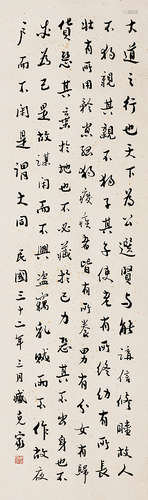 大道之行也天下為公選賢與能講信修睦故人
不獨親其親不獨子其子使老者有所終幼有所長
壯有所用矜寡孤獨廢疾者皆有所養男有分女有歸
貨惡其棄於地也不必藏於己力惡其不出身也不
必為己是故謀閉而不興盜竊亂賊而不作故夜
戶而不閉是謂大同 民國三十二年三月臧克家